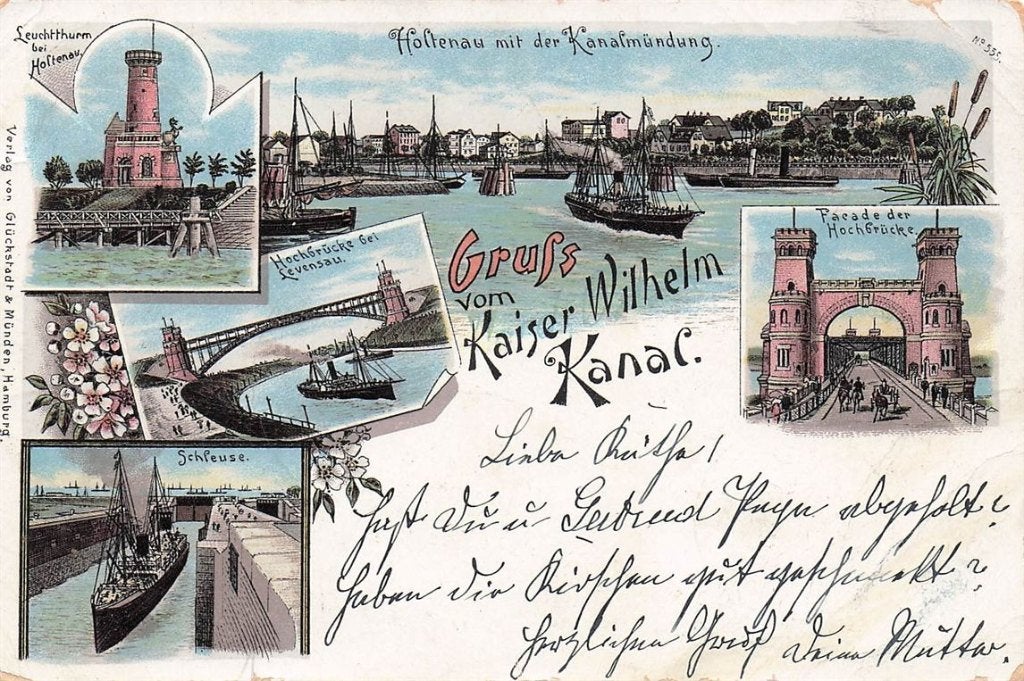 Leuchtthurm
bei
Holtenau.
Holtenau mit der Kanalmündung.
No 555.
Verlag von Glückstadt & Münden, Hamburg.
Hochbrücke bei
Levensau.
Gruss
vom
Kaiser Wilhelm
Kanal.
Facade der
Hochbrücke.
Schleuse.
Liebe Käthe!
Hast Du u abgeholt?
haben die Kirschen gut geschmekt?
Herzlichen Gruß Deine Mutter.